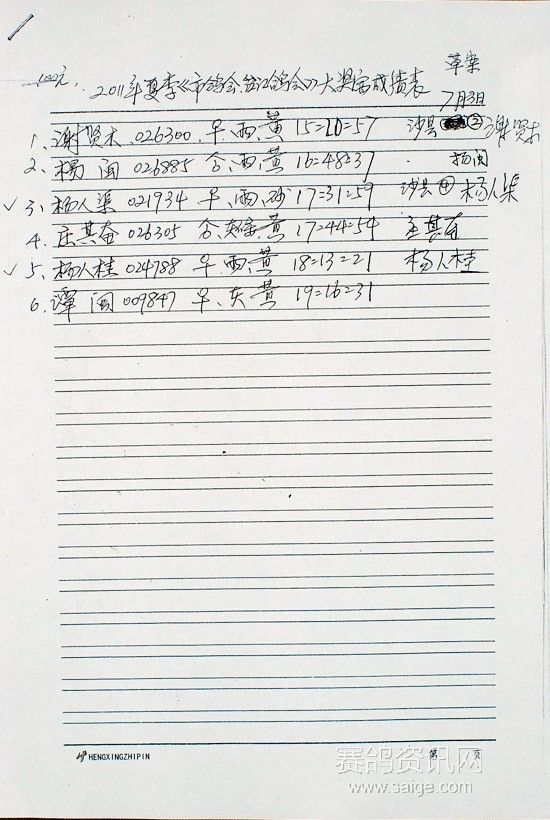 100元,
草案
2011年夏季《市鸽会、台江鸽会》大奖赛成绩表
7月3日
1、谢贤木、026300、早、雨、黄 15=20=57 沙县 ② 谢贤木
2、杨闽 026885 合、雨、黄 16=48=37 . 杨闽
✓ 3、杨人渠 021934 早、雨、砂 17=31=59 沙县 杨人渠
4、庄其奋 026305 合、黄 17=44=54 庄其奋
✓ 5、杨人桂 024788 早、雨、黄 18=13=21 杨人桂
6、谭闽 009847 早、灰、黄 19=16=31
HENGXINGZHIPIN 第 页
赛鸽资讯网
www.saige.com